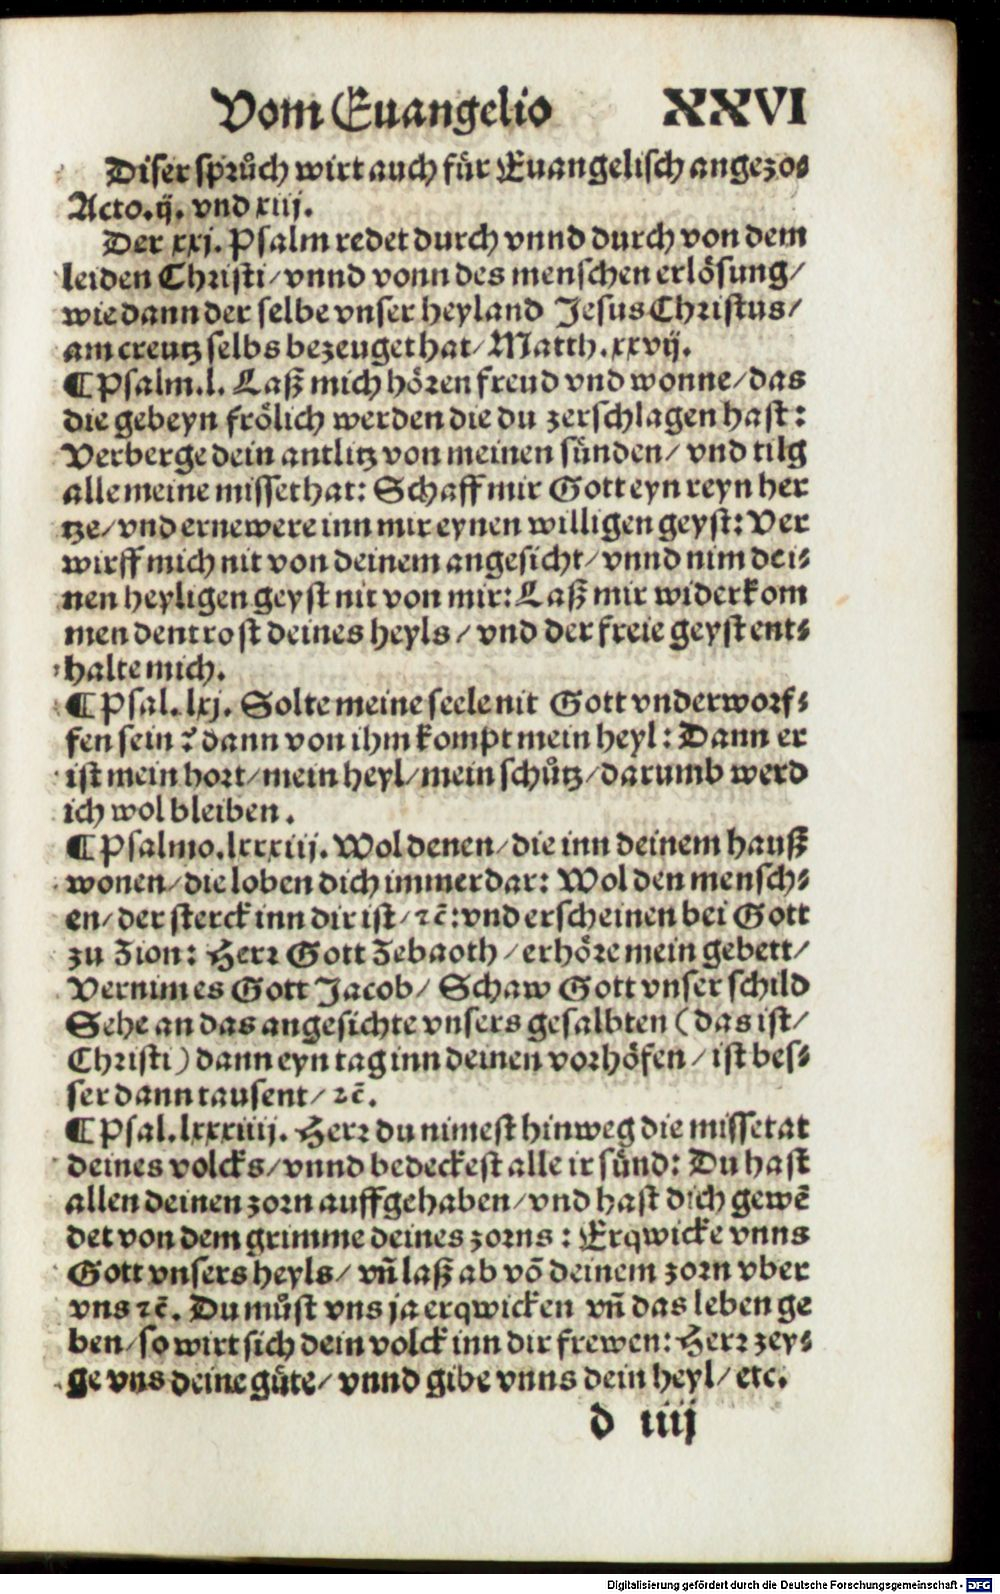 Vom Euangelio XXVI
Diser sprůch wirt auch für Euangelisch angezo⸗
Acto.ij. vnd xiij.
Der xxj. Psalm redet durch vnnd durch von dem
leiden Christi/ vnnd vonn des menschen erlösung/
wie dann der selbe vnser heyland Jesus Christus/
am creutz selbs bezeuget hat/ Matth.xxvij.
¶ Psalm.l. Laß mich hören freud vnd wonne/ das
die gebeyn frölich werden die du zerschlagen hast:
Verberge dein antlitz von meinen sünden/ vnd tilg
alle meine missethat: Schaff mir Gott eyn reyn her
tze/ vnd ernewere inn mir eynen willigen geyst: Ver
wirff mich nit von deinem angesicht/ vnnd nim dei⸗
nen heyligen geyst nit von mir: Laß mir widerkom
men den trost deines heyls/ vnd der freie geyst ent⸗
halte mich.
¶ Psal.lxj. Solte meine seele nit Gott vnderworf⸗
fen sein? dann von ihm kompt mein heyl: Dann er
ist mein hort/ mein heyl/ mein schůtz/ darumb werd
ich wol bleiben.
¶ Psalmo.lxxxiij. Wol denen/ die inn deinem hauß
wonen/ die loben dich immerdar: Wol den mensch⸗
en/ der sterck inn dir ist/ ꝛc̄: vnd erscheinen bei Gott
zu Zion: Herr Gott Zebaoth/ erhöre mein gebett/
Vernim es Gott Jacob/ Schaw Gott vnser schild
Sehe an das angesichte vnsers gesalbten (das ist/
Christi) dann eyn tag inn deinen vorhöfen/ ist bes⸗
ser dann tausent/ ꝛc̄.
¶ Psal.lxxxiiij. Herr du nimest hinweg die missetat
deines volcks/ vnnd bedeckest alle ir sünd: Du hast
allen deinen zorn auffgehaben/ vnd hast dich gewē
det von dem grimme deines zorns: Erqwicke vnns
Gott vnsers heyls/ vñ laß ab võ deinem zorn vber
vns ꝛc̄. Du můst vns ja erqwicken vñ das leben ge
ben/ so wirt sich dein volck inn dir frewen: Herr zey⸗
ge vns deine güte/ vnnd gibe vnns dein heyl/ etc.
d iiij
Digitalisierung gefördert durch die Deutsche Forschungsgemeinschaft - DFG